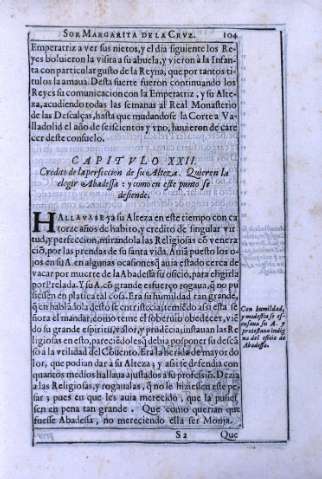 SOR MARGARITA DE LA CRVZ. 104
Emperatriz a ver sus nietos, y el dia siguiente los Re-
yes boluieron la visita a su abuela, y vieron à la Infan-
ta con particular gusto de la Reyna, que por tantos ti-
tulos la amaua. Desta suerte fueron continuando los
Reyes su comunicacion con la Emperatriz, y su Alte-
za, acudiendo todas las semanas al Real Monasterio
de las Descalças, hasta que mudandose la Corte a Va-
lladolid el año de seiscientos y vno, huuieron de care-
cer deste consuelo.
CAPITVLO XXII.
Credito de la perfeccion de su Alteza. Quieren la
elegir Abadessa: y como en este punto se
defiende.
HALLAVASE ya su Alteza en este tiempo con ca-
torze años de habito, y credito de singular vir-
tud, y perfeccion, mirandola las Religiosas cō venera-
ciō, por las prendas de su santa vida. Auiā puesto los o-
jos en su A. en algunas ocasiones, q̃ auia estado cerca de
vacar por muerte de la Abadessa su oficio, para eligirla
por Prelada. Y su A. cō grande esfuerço rogaua, q̃ no pu
siessen en platica tal cosa. Era su humildad tan grande,
q̃ en hablādola desto se entristecia; temēdo assi esta se-
ñora el mandar, como teme el soberuio obedecer, viē
do su grande espiritu, valor, y prudēcia, instauan las Re
ligiosas en esto, pareciēdoles, q̃ debia posponer su desca
so a la vtilidad del Cōuento. Era la herida de mayor do
lor, que podian dar a su Alteza; y assi se defendia con
quantos medios hallaua ajustados a su professiō. Dezia
a las Religiosas, y rogaualas, q̃ no le hiziessen este pe-
sar; pues en que les auia merecido, que la pusies-
sen en pena tan grande. Que como querian que
fuesse Abadessa, no mereciendo ella ser Monja.
S 2 Que
Con humildad,
y modestia se es-
cusaua su A. y
protestaua indig
na del oficio de
Abadessa.